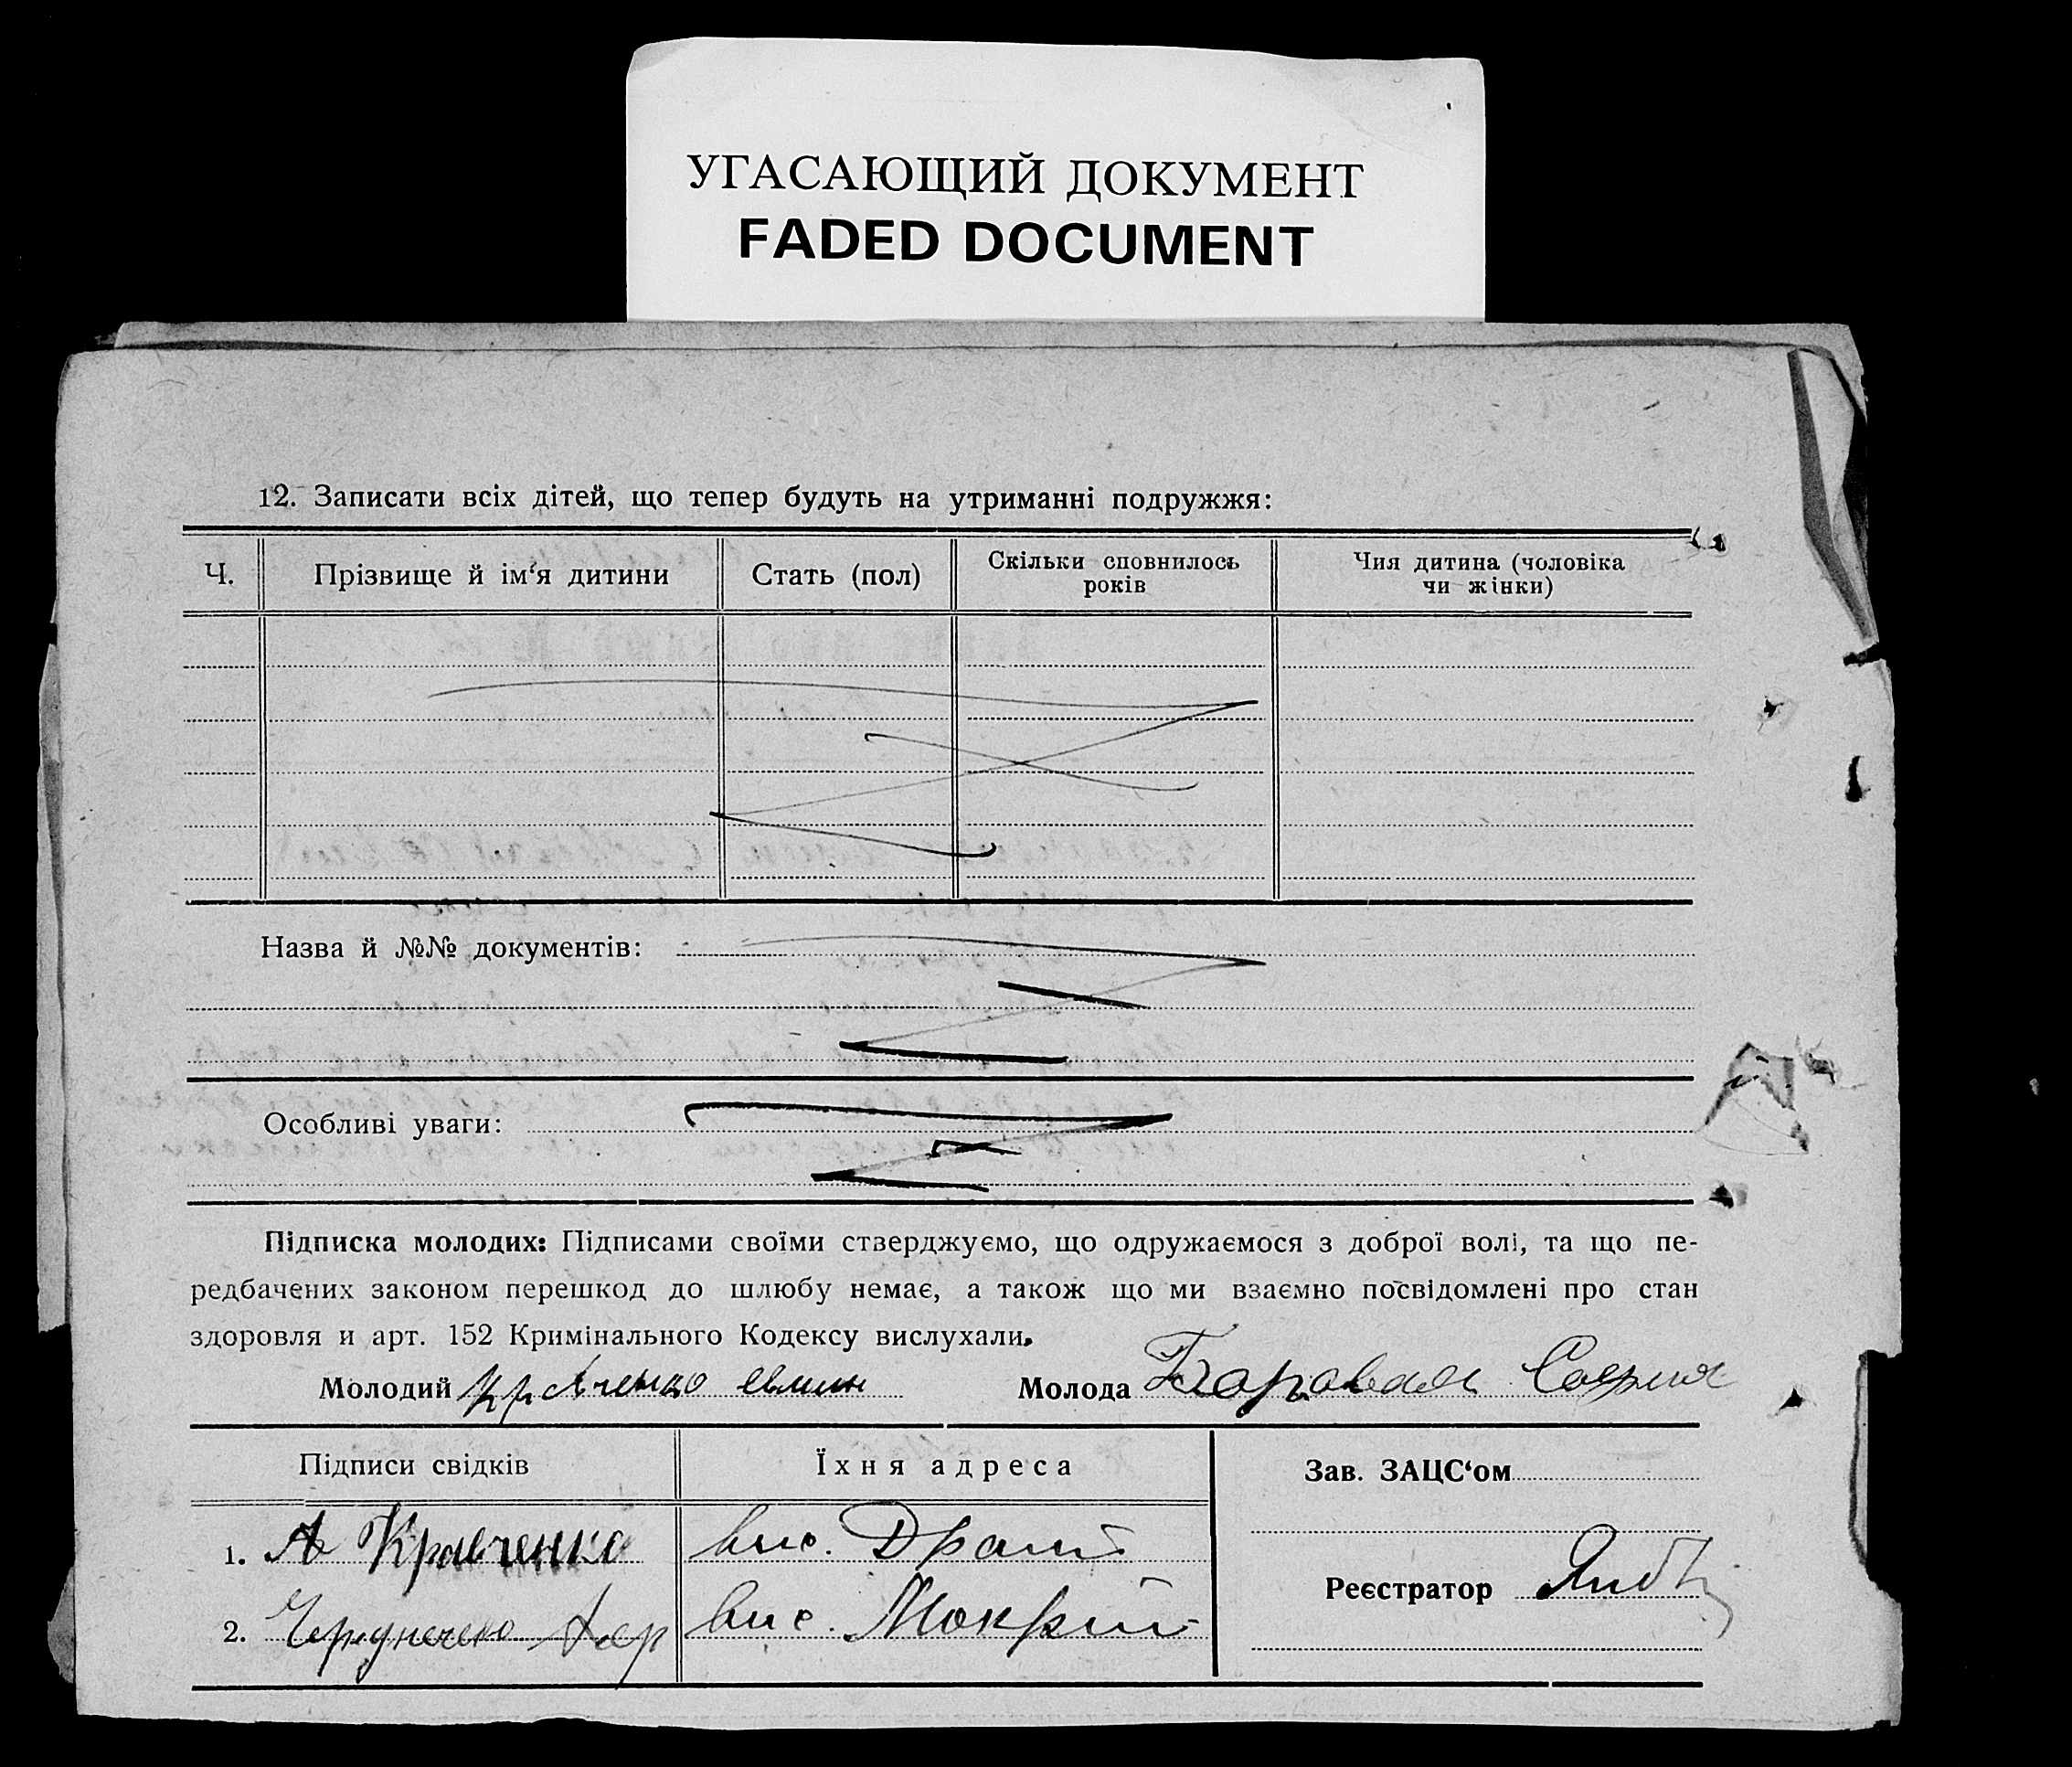 УГАСАЮЩИЙ ДОКУМЕНТ
FADED DOCUMENT
12. Записати всіх дітей, що тепер будуть на утриманні подружжя:
Ч. Прізвище й ім‘я дитини Стать (пол) Скільки сповнилось років Чия дитина (чоловіка чи жінки)
Назва й №№ документів:
Особливі уваги:
Підписка молодих: Підписами своїми стверджуємо, що одружаємося з доброї волі, та що пе-
редбачених законом перешкод до шлюбу немає, а також що ми взаємно посвідомлені про стан
здоровля и арт. 152 Кримінального Кодексу вислухали.
Молодий Кравченко Молода Боровая София
Підписи свідків Їхня адреса Зав. ЗАЦС‘ом
1. А Кравченко вис. Драгий
Реєстратор
2. вис. Мокрий